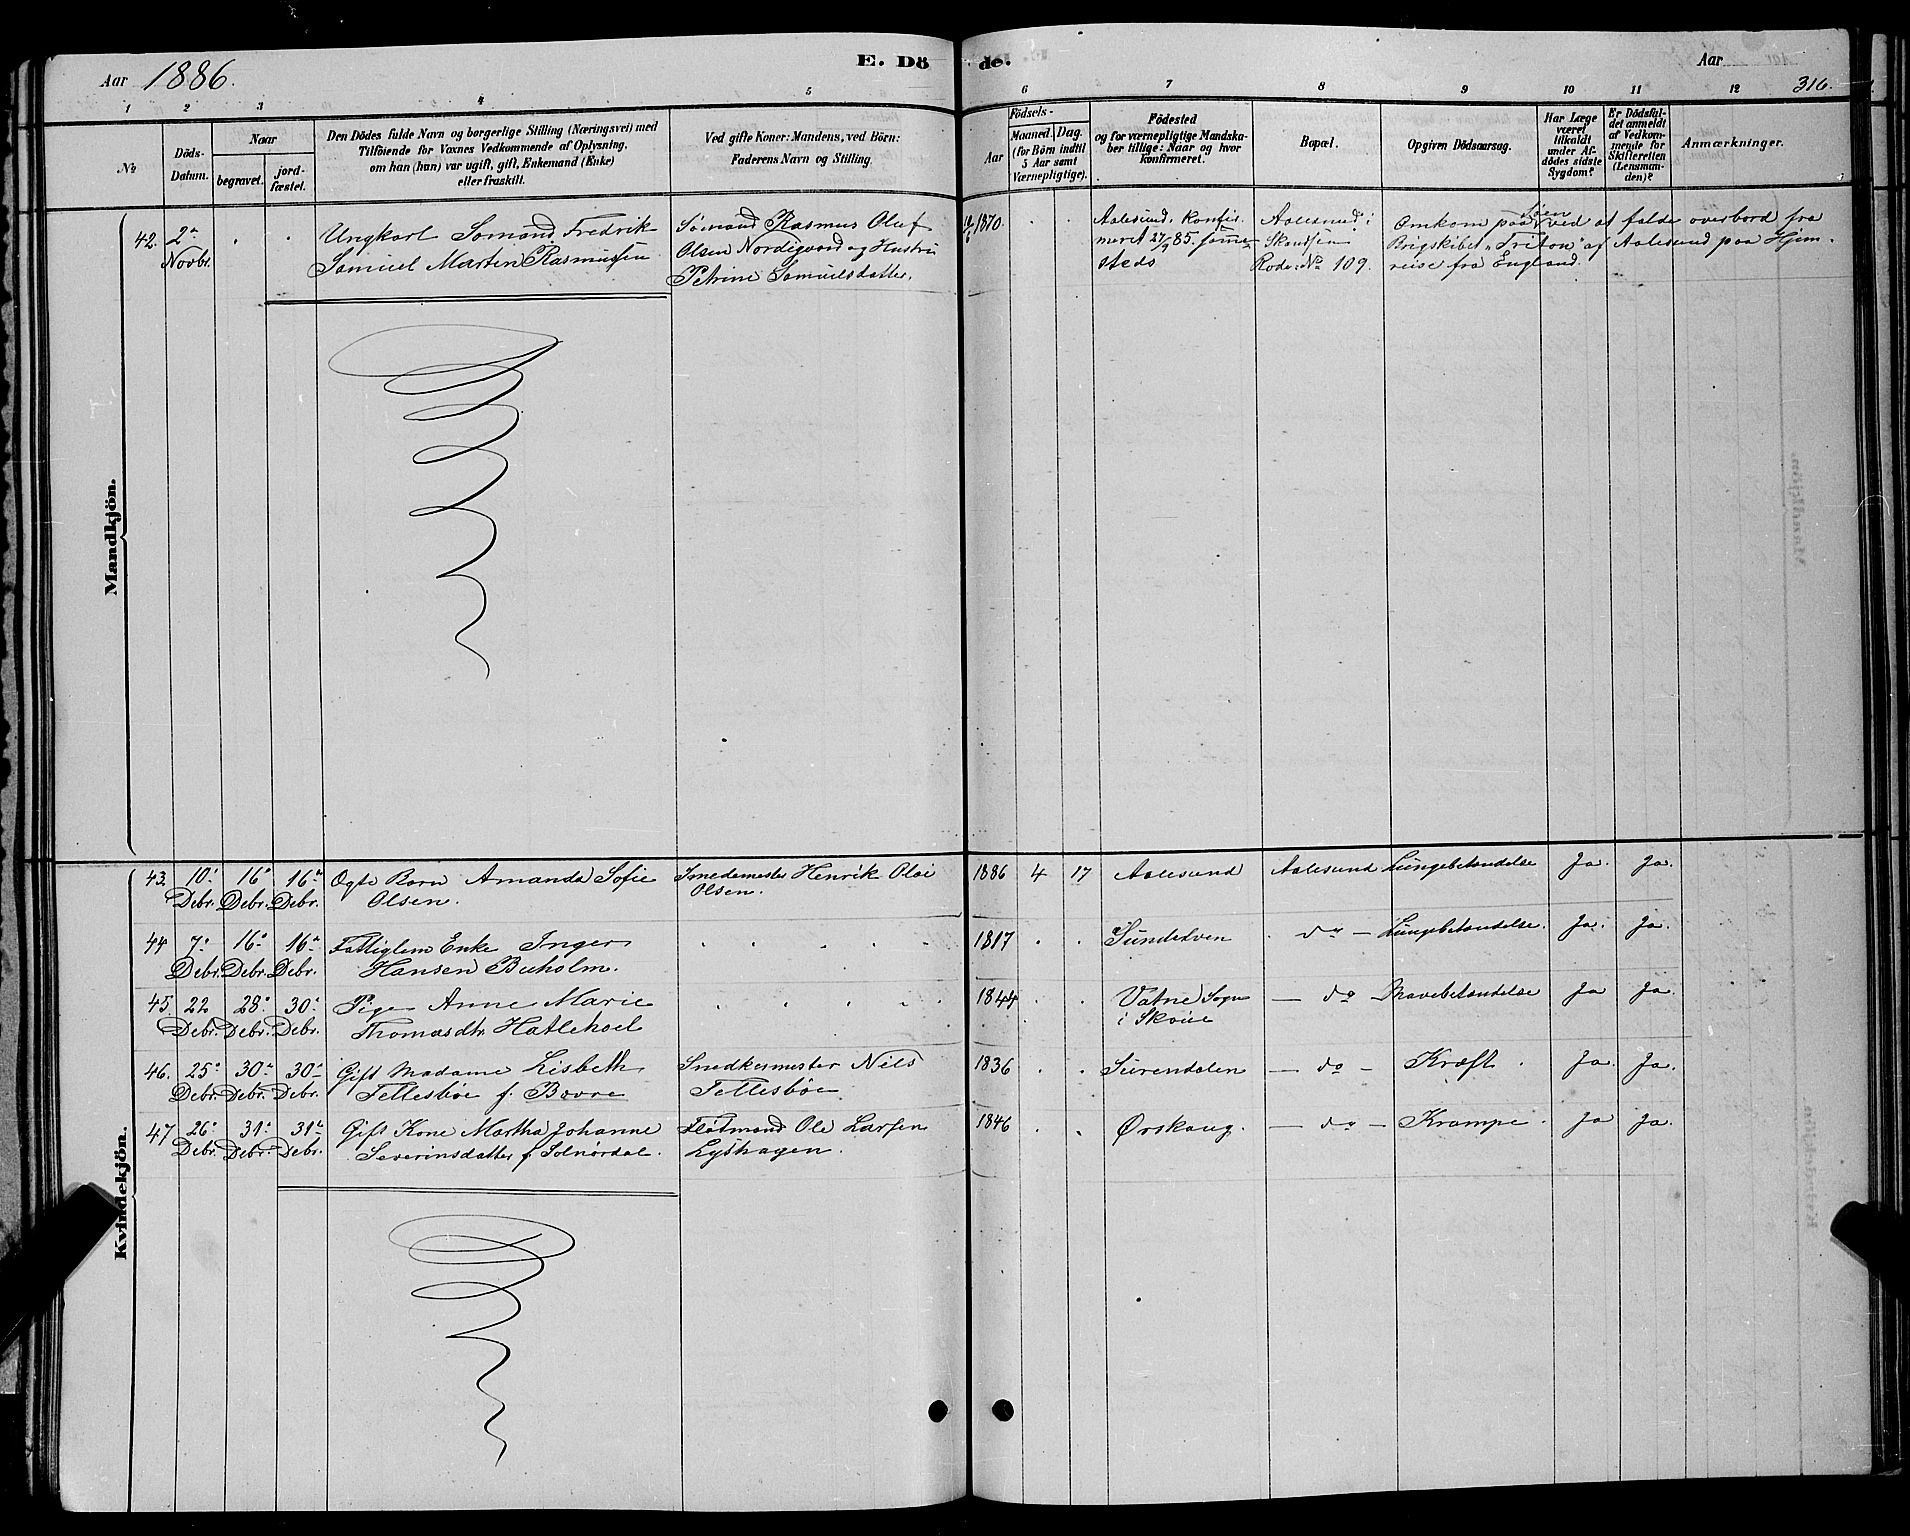 Aar 1886.
E. Dö
de.
Aar
316.
1 2 3 4 5 6 7 8 9 10 11 12
No
Döds-Datum.
Naar
begravet.
jord-fæstet.
Den Dödes fulde Navn og borgerlige Stilling (Næringsvei) med
Tilföiende for Voxnes Vedkommende af Oplysning,
om han (hun) var ugift, gift, Enkemand (Enke)
eller fraskilt.
Ved gifte Koner: Mandens, ved Börn:
Faderens Navn og Stilling.
Födsels-
Aar
Maaned. Dag.
(for Börn indtil
5 Aar samt
Værnepligtige).
Födested
og for værnepligtige Mandska-
ber tillige: Naar og hvor
konfirmeret.
Bopæl.
Opgiven Dödsaarsag.
Har Læge
været
tilkaldt
under Af-
dödes sidste
Sygdom?
Er Dödsfal-
det anmeldt
af Vedkom-
mende for
Skifteretten
(Lensman-
den)?
Anmærkninger.
Mandkjön.
42. 2en Novbr.
Ungkarl Sømand Fredrik
Samuel Martin Rasmussen
Sømand Rasmus Oluf
Olsen Nordigaard og Hustru
Petrine Samuelsdatter.
1870.
Aalesund. Konfir.
meret 27/9 85. samme-
steds
Aalesund i
Rode No 109.
Omkom paa Søen ved at falde overbord fra
Brigskibet "Triton" af Aalesund paa Hjem-
reise fra England.
Kvindekjön.
43. 10. Debr. 16 Debr. 16 Debr.
Ægte Barn Amanda Sofie
Olsen.
Smedemester Henrik Olai
Olsen.
1886 4 17 Aalesund Aalesund Lungebetændelse Ja. Ja.
44 7 Debr. 16 Debr. 16 Debr.
Fattiglem Enke Inger
Hansen Buholm.
1817 . . Sundalven . do - Lungebetændelse. Ja. Ja.
45. 22 Debr. 28 Debr. 30 Debr.
Pige Anne Marie
Thomasdtr. Hatlehoel
1844 . . Vatne Sogn
i Skoue
- do Mavebetændelse Ja Ja.
46. 25 Debr. 30 Debr. 30 Debr.
Gift Madame Lisbeth
Tellesbøe f. Bovre
Snedkermester Nils
Tellesbøe
1836 . . Surendalen - do - Kræft. Ja. Ja.
47 26 Debr. 31 Debr. 31 Debr.
Gift Kone Martha Johanne
Severinsdatter f. Solnørdal.
Fløtmand Ole Larsen
Lyshagen.
1846 . . Ørskoug. - do - Krampe. Ja Ja.